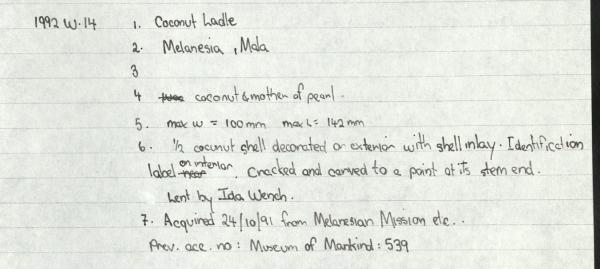 1992 W.14 1. Coconut Ladle
2. Melanesia, Mala
3
4 coconut & mother of pearl.
5. max w = 100mm max L = 142mm
6. ½ coconut shell decorated on exterior with shell inlay. Identification
label on interior. Cracked and carved to a point at its stem end.
Lent by Ida Wench.
7. Acquired 24/10/91 from Melanesian Mission etc..
Prev. acc. no: Museum of Mankind: 539